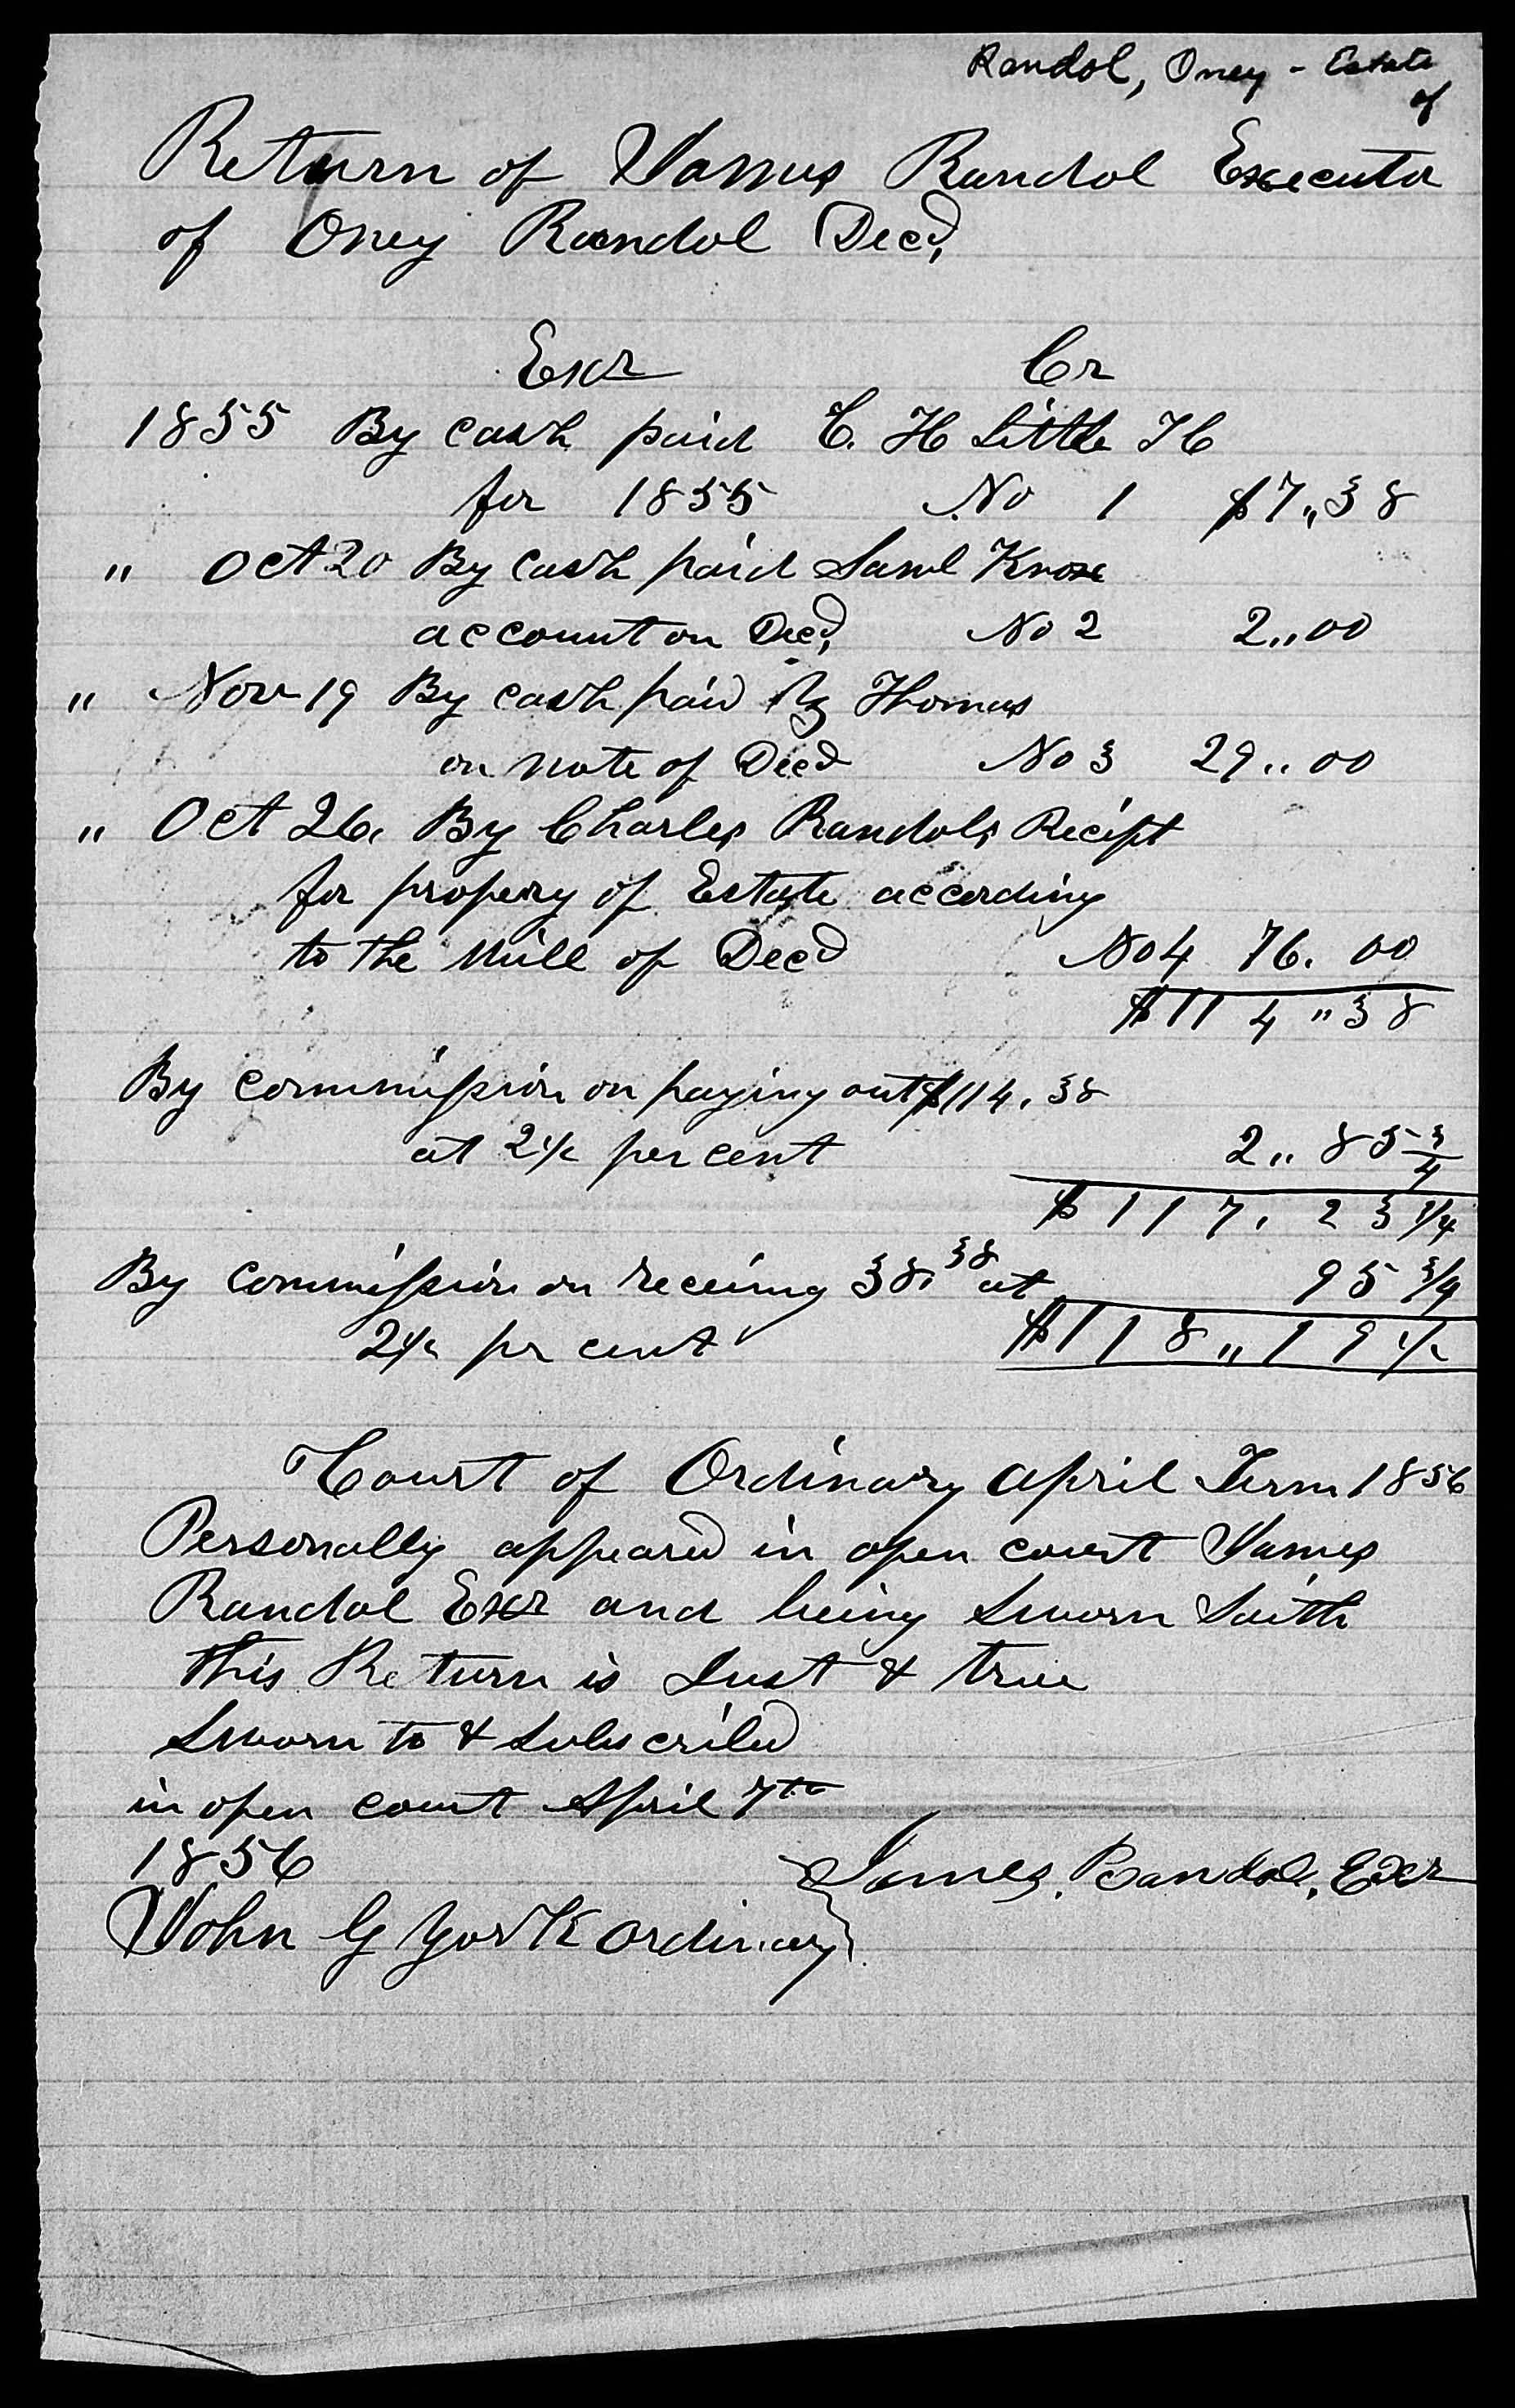 Randol, Oney - Estate
of
Return of James Randol Executor
of Oney Randol Decd,
Exr Cr
1855 By cash paid C. H Little TC
for 1855 No 1 $7,,38
" Oct 20 By Cash paid Saml Knox
account on Decd, No 2 2,,00
" Nov 19 By cash paid Thomas
on note of Decd No 3 29,,00
" Oct 26, By Charles Randols Recipt
for propery of Estate according
to the Will of Decd No 4 76. 00
$114,,38
By commission on paying out $114.38
at 2½ per cent 2,,85¾
$117,23¼
By Commission on receiing 38,38 at 95¾
2½ pr cent $118,,19½
Court of Ordinary April Term 1856
Personally appeared in open court James
Randol Exr and being Sworn Saith
this Return is Just & true
Sworn to & Subscribed
in open court April 7th
1856 James. Randol, Exr
John G York ordinary